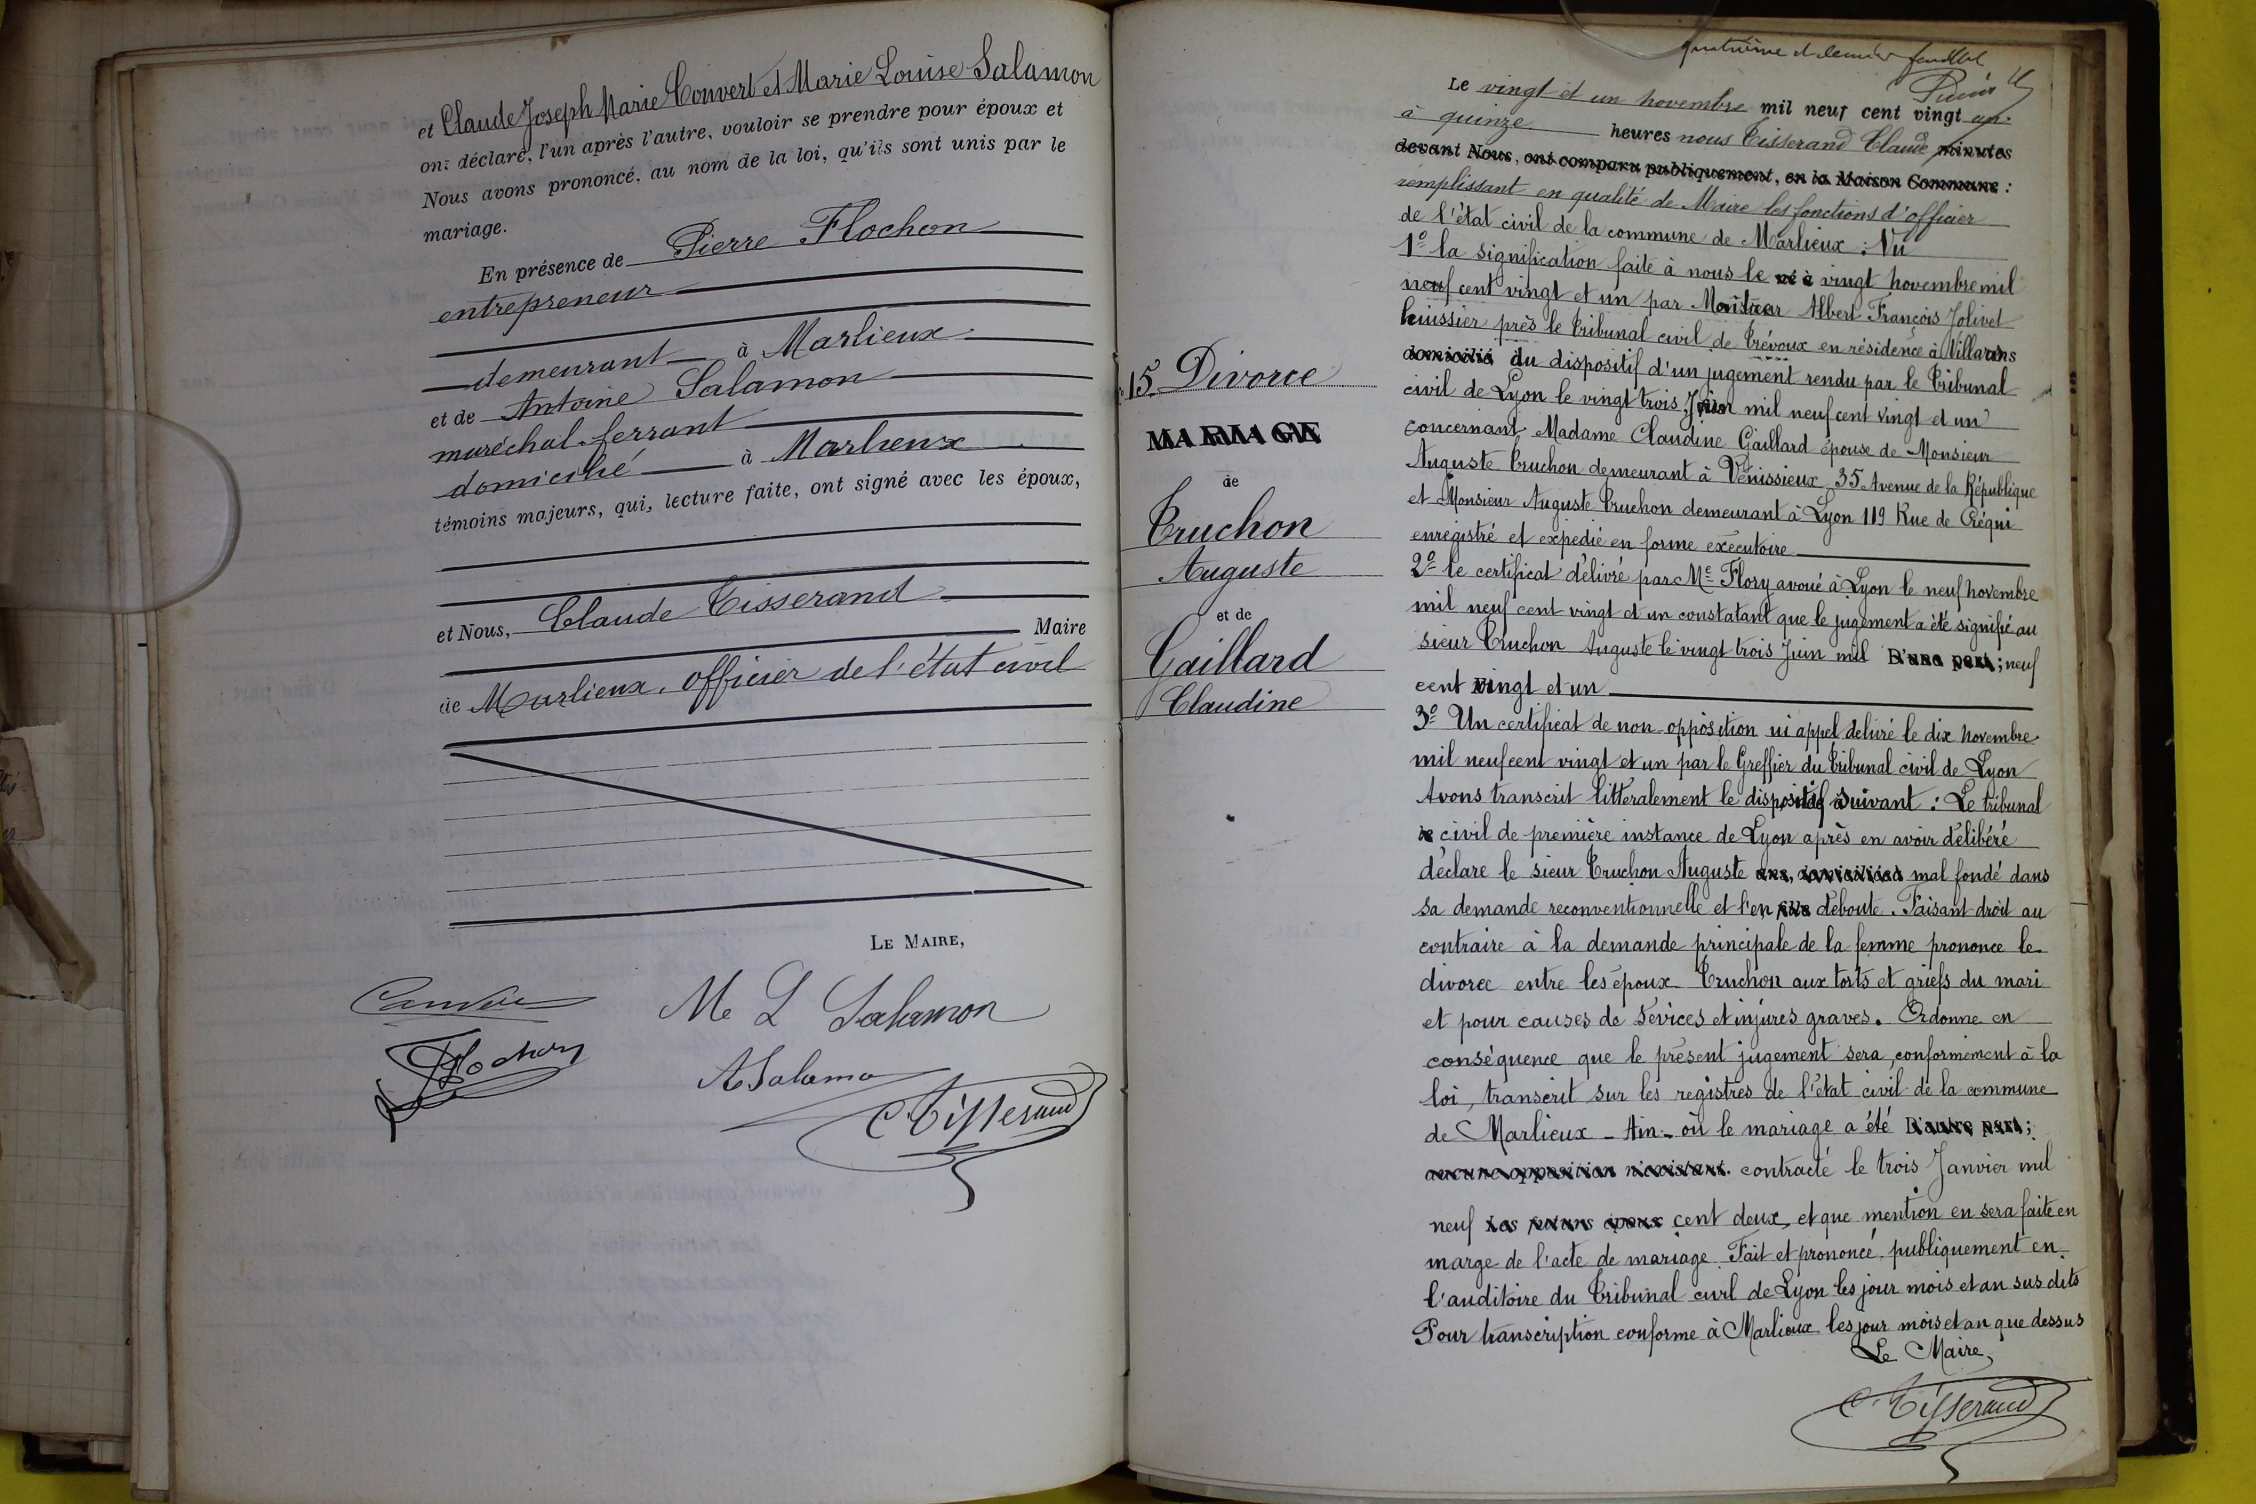 et Claude Joseph Marie Convert et Marie Louise Salamon
ont déclaré, l'un après l'autre, vouloir se prendre pour époux et
Nous avons prononcé, au nom de la loi, qu'ils sont unis par le
mariage.
En présence de Pierre Flochon
entrepreneur
demeurant à Marlieux
et de Antoine Salamon
maréchal-ferrant
domicilié à Marlieux
témoins majeurs, qui, lecture faite, ont signé avec les époux,
et Nous, Claude Tisserand
Maire
de Marlieux, officier de l'état civil
LE MAIRE,
M L Salamon
Flochon
A Salamo
C Tisserand
15. Divorce
MARIAGE
de
Truchon
Auguste
et de
Gaillard
Claudine
quatrième et dernier feuillet
Le vingt et un novembre mil neuf cent vingt un
à quinze heures nous Tisserand Claude minutes
devant Nous, ont comparu publiquement, en la Maison Commune :
remplissant en qualité de Maire les fonctions d'officier
de l'état civil de la commune de Marlieux : Vu
1º la signification faite à nous le né à vingt novembre mil
neuf cent vingt et un par Monsieur Albert François Jolivet
huissier près le Tribunal civil de Trévoux en résidence à Villars
domicilié du dispositif d'un jugement rendu par le Tribunal
civil de Lyon le vingt trois Juin mil neuf cent vingt et un
concernant Madame Claudine Gaillard épouse de Monsieur
Auguste Truchon demeurant à Vénissieux 35 Avenue de la République
et Monsieur Auguste Truchon demeurant à Lyon 119 Rue de Créqui
enregistré et expédié en forme exécutoire
2º le certificat délivré par Me Flory avoué à Lyon le neuf novembre
mil neuf cent vingt et un constatant que le jugement a été signifié au
sieur Truchon Auguste le vingt trois Juin mil D'une part ; neuf
cent vingt et un
3º Un certificat de non-opposition ni appel délivré le dix novembre
mil neuf cent vingt et un par le Greffier du Tribunal civil de Lyon
Avons transcrit littéralement le dispositif suivant : Le tribunal
civil de première instance de Lyon après en avoir délibéré
déclare le sieur Truchon Auguste ans, domicilié mal fondé dans
sa demande reconventionnelle et l'en fille déboute. Faisant droit au
contraire à la demande principale de la femme prononce le
divorce entre les époux Truchon aux torts et griefs du mari
et pour causes de sévices et injures graves. Ordonne en
conséquence que le présent jugement sera, conformément à la
loi, transcrit sur les registres de l'état civil de la commune
de Marlieux - Ain - où le mariage a été D'autre part ;
aucune opposition n'existant. contracté le trois Janvier mil
neuf Les futurs époux cent deux, et que mention en sera faite en
marge de l'acte de mariage. Fait et prononcé publiquement en
l'auditoire du Tribunal civil de Lyon les jour mois et an sus dits
Pour transcription conforme à Marlieux les jour mois et an que dessus
Le Maire,
C Tisserand